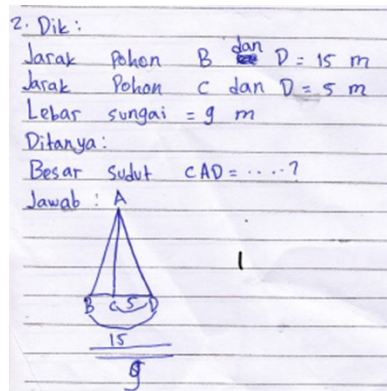 2. Dik :
Jarak Pohon B dan D = 15 m
Jarak Pohon C dan D = 5 m
Lebar sungai = 9 m
Ditanya :
Besar sudut CAD = ....?
Jawab : A
B C 5 D
15
9